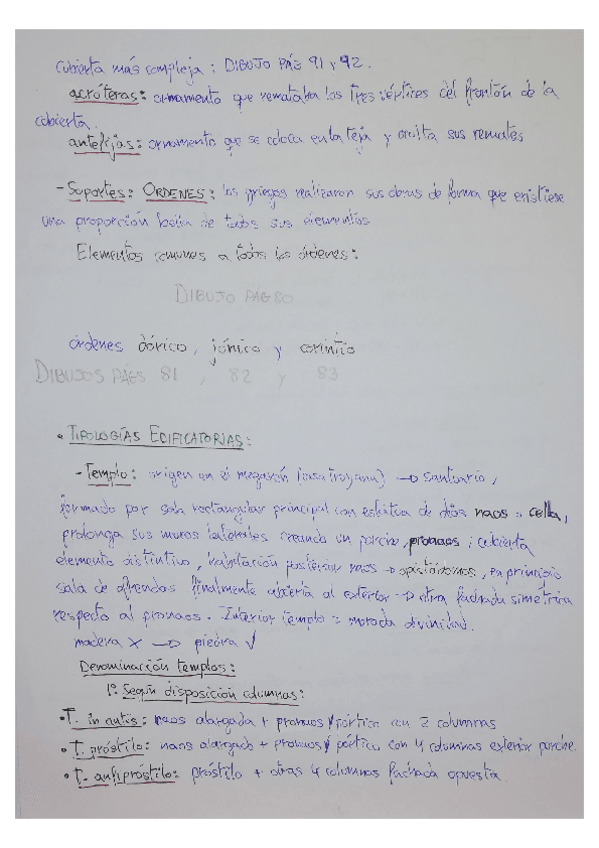 Cubierta más compleja: DIBUJO PÁG 91 y 92.
acróteras: ornamento que remataba los tres vértices del frontón de la
cubierta.
antefijas: ornamento que se coloca en la teja y oculta sus remates
- Soportes: ORDENES: los griegos realizaron sus obras de forma que existiese
una proporción bella de todos sus elementos
Elementos comunes a todos los órdenes:
DIBUJO PÁG 80
órdenes dórico, jónico y corintio
DIBUJOS PÁGS 81, 82 y 83
• TIPOLOGÍAS EDIFICATORIAS:
- Templo: origen en el megarón (casa troyana) → santuario,
formado por sala rectangular principal con estatua de dios naos = cella,
prolonga sus muros laterales creando un porche, pronaos; cubierta
elemento distintivo, habitación posterior naos → opistódomos, en principio
sala de ofrendas finalmente abierta al exterior → otra fachada simétrica
respecto al pronaos. Interior templo = morada divinidad.
madera x → piedra √
Denominación templos:
1º Según disposición columnas:
• T. in antis: naos alargada + pronaos/pórtico con 2 columnas
• T. próstilo: naos alargado + pronaos/pórtico con 4 columnas exterior porche.
• T. anfipróstilo: próstilo + otras 4 columnas fachada opuesta.